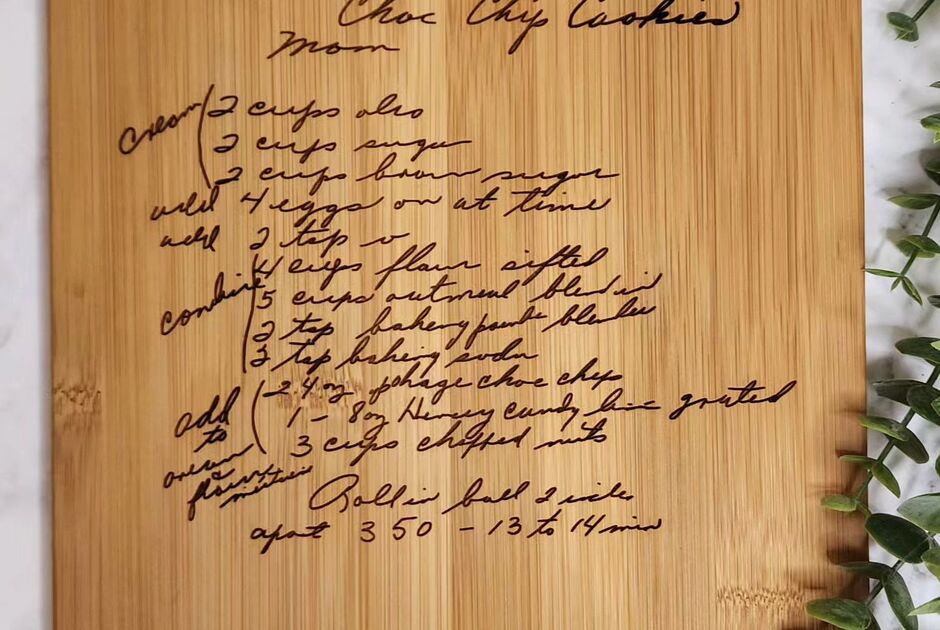 Choc Chip Cookies
Mom
cream ( 2 cups oleo
2 cups sugar
2 cups brown sugar
add 4 eggs on at time
add 2 tsp v
combine ( 4 cups flour sifted
5 cups outmeal blend in
2 tsp baking powder blender
2 tsp baking soda
add to cream & flour mixture ( 2 4 oz pkage choc chips
1 - 8oz Hersey candy bar grated
3 cups chopped nuts
Roll in ball 2 inches
apart 350 - 13 to 14 min